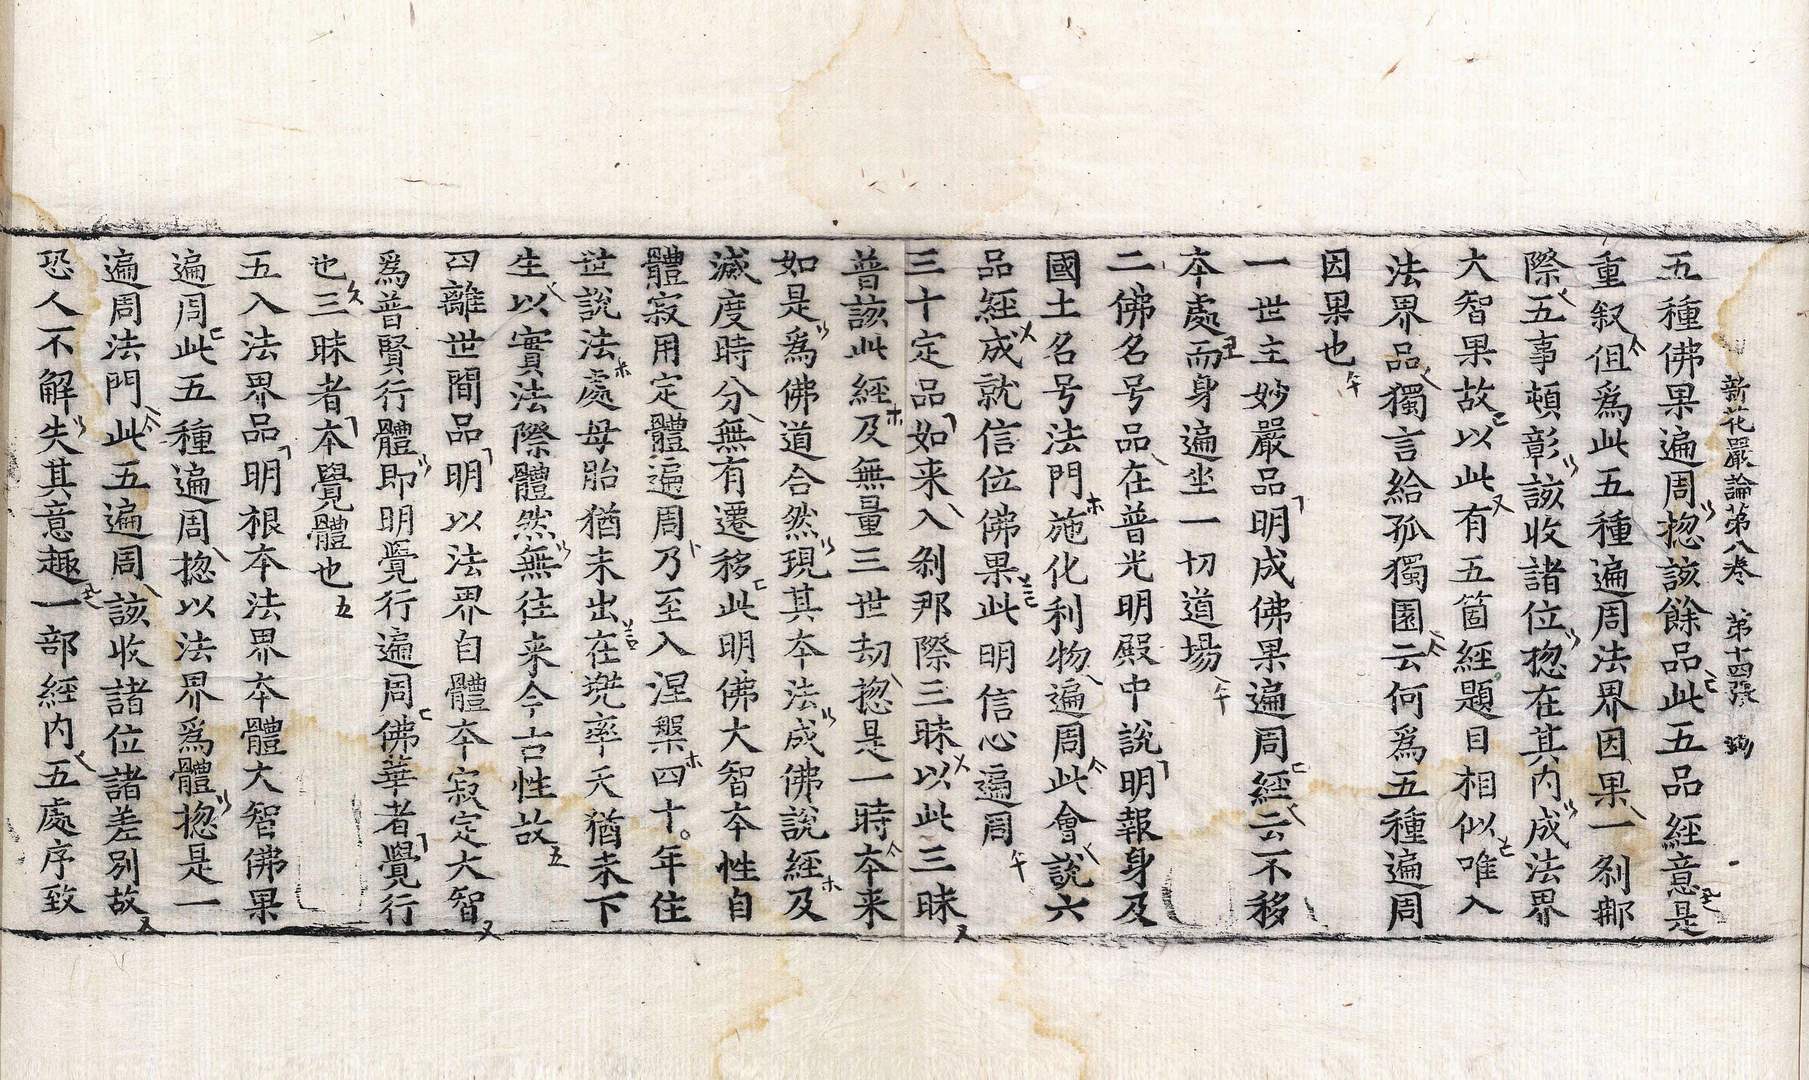 新花嚴論第八卷 第十四張
五種佛果遍周揔該餘品此五品經意是
重叙但爲此五種遍周法界因果一刹那
際五事頓彰該收諸位揔在其內成法界
大智果故以此有五箇經題目相似唯入
法界品獨言給孤獨園云何爲五種遍周
因果也
一世主妙嚴品明成佛果遍周經云不移
本處而身遍坐一切道場
二佛名号品在普光明殿中說明報身及
國土名号法門施化利物遍周此會說六
品經成就信位佛果此明信心遍周
三十定品如来入刹那際三昧以此三昧
普該此經及無量三世劫揔是一時本来
如是爲佛道合然現其本法成佛說經及
滅度時分無有遷移此明佛大智本性自
體寂用定體遍周乃至入涅槃四十年住
世說法處母胎猶未出在兠率天猶未下
生以實法際體然無往来今古性故
四離世間品明以法界自體本寂定大智
爲普賢行體即明覺行遍周佛華者覺行
也三昧者本覺體也
五入法界品明根本法界本體大智佛果
遍周此五種遍周揔以法界爲體揔是一
遍周法門此五遍周該收諸位諸差別故
恐人不解失其意趣一部經內五處序致